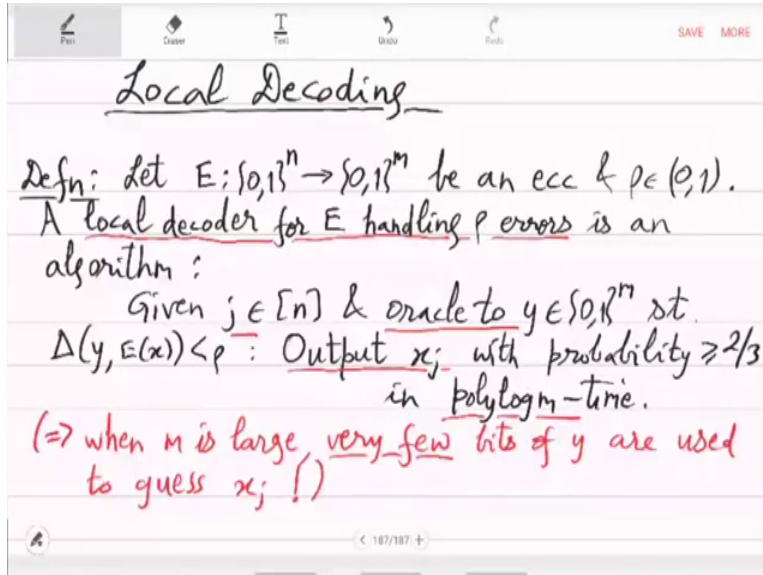 Pen Eraser Text Undo Redo SAVE MORE
Local Decoding
Defn: Let E: {0,1}ⁿ → {0,1}ᵐ be an ecc & ρ∈(0,1).
A local decoder for E handling ρ errors is an
algorithm :
Given j ∈ [n] & oracle to y ∈ {0,1}ᵐ st.
Δ(y, E(x)) < ρ : Output xⱼ with probability ≥ 2/3
in polylog m - time.
(=> when m is large, very few bits of y are used
to guess xⱼ !)
< 187/187 +